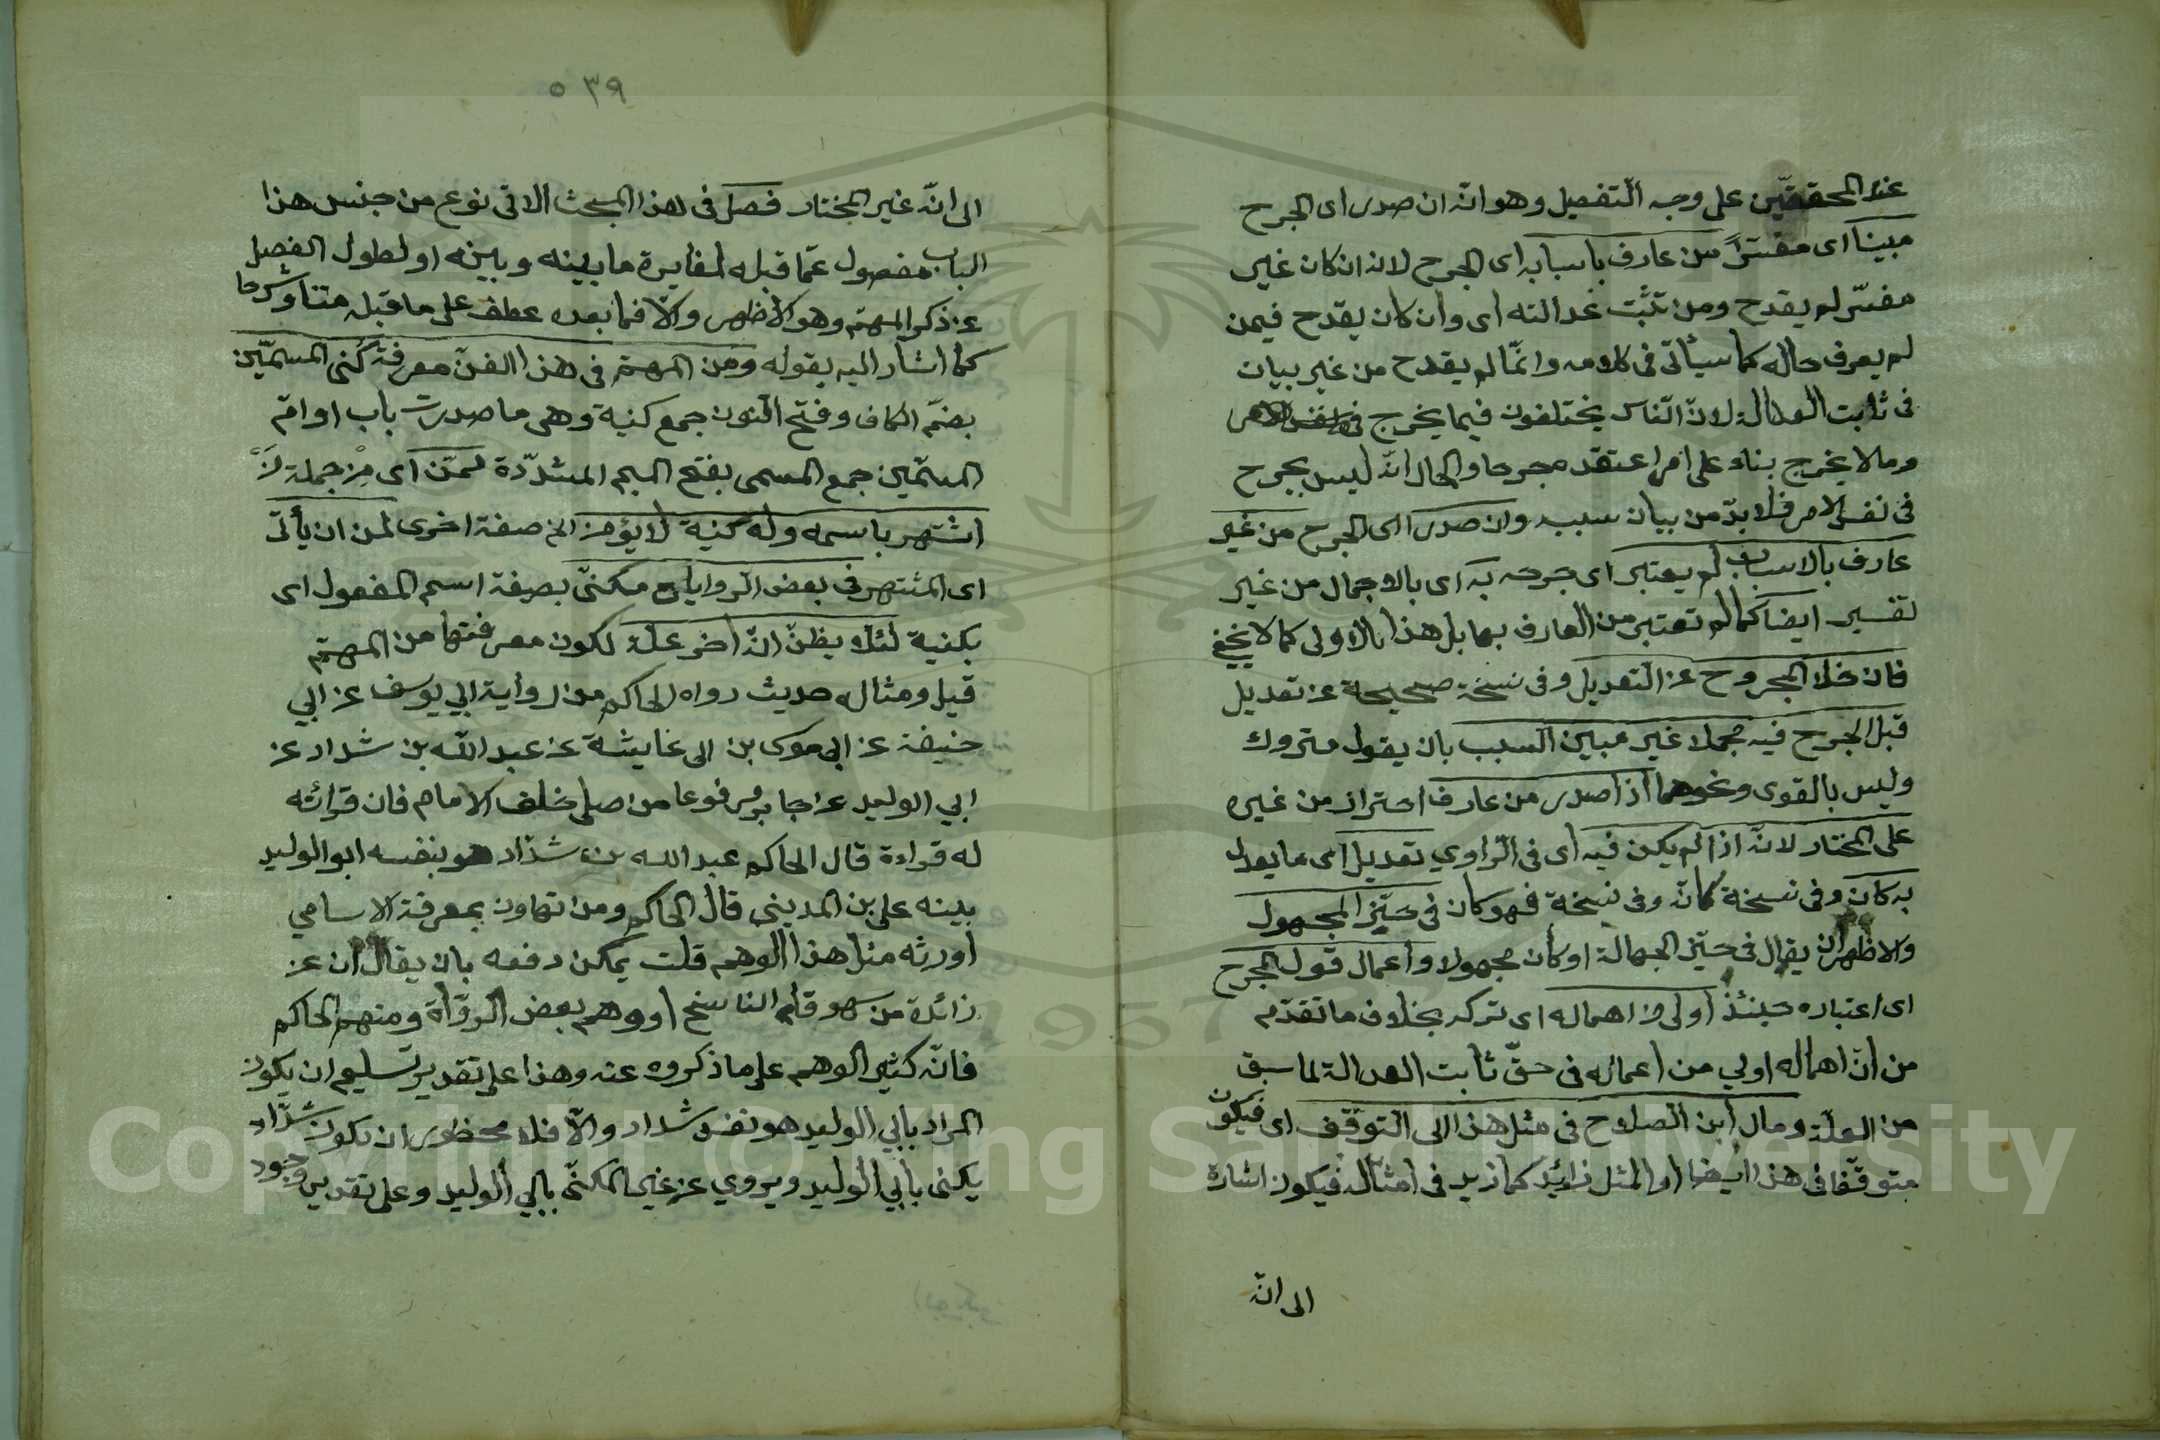 عند المحققين على وجه التفصيل وهو انه ان صدر اى الجرح
مبينا اى مفسرًا من عارف باسبابه اى الجرح لانه ان كان غير
مفسّر لم يقدح ومن تثبت عدالته اى وان كان يقدح فيمن
لم يعرف حاله كما سيأتى فى كلامه وانّما لم يقدح من غير بيان
فى ثابت العدالة لانّ النّاس يختلفون فيما يخرج
وما لا يخرج بناء على امر اعتقد مجرحا والحال انّه ليس بجرح
فى نفس الامر فلا بدّ من بيان سببه وان صدر اى الجرح من غير
عارف بالاسباب لم يعتبر اى جرحه به اى بالاجمال من غير
تفسير ايضا كما لم تعتبر من العارف بها بل هذا بالاولى كما لا يخفى
فان خلا المجروح عن التعديل وفى نسخة صحيحة عن تعديل
قبل الجرح فيه مجملا غير مبين السبب بان يقول متروك
وليس بالقوى ونحوهما اذا صدر من عارف احتراز من غيره
على المختار لانّه اذا لم يكن فيه اى فى الرّاوي تعديل اى ما يعدل
به كان وفى نسخة كانّه وفى نسخة فهو كان فى حيّز المجهول
والاظهر ان يقال فى حيّز الجهالة او كان مجهولا واعمال قول المجرح
اى اعتباره حينئذ اولى من اهماله اى تركه بخلاف ما تقدّم
من انّ اهماله اولى من اعماله فى حقّ ثابت العدالة لما سبق
من العلّة ومال ابن الصلاح فى مثل هذا الى التوقّف اى فيكون
متوقّفا فى هذا ايضا او المثل زائد كما زيد فى امثاله فيكون اشارة
الى انّه
٥٣٩
الى انّه غير المختار فصل فى هذا المبحث الاتى نوع من جنس هذا
الباب مفصول عمّا قبله لمغايرة ما بينه وبينه او لطول الفصل
عن ذكر المهم وهو الاظهر والا فما بعده عطف على ما قبله متنا وشرحا
كما اشار اليه بقوله ومن المهم فى هذا الفنّ معرفة كنى المسمّين
بضمّ الكاف وفتح النون جمع كنية وهى ما صدرت باب او امّ
المسمّين جمع المسمى بفتح الميم المشدّدة ممّن اى من جملة
اشتهر باسمه وله كنية لا يؤمن الخ صفة اخرى لمن ان يأتى
اى المشتهر فى بعض الروايات مكنّى بصيغة اسم المفعول اى
بكنية لئلا يظنّ انّه اخر علّة لكون معرفتها من المهم
قيل ومثاله حديث رواه الحاكم من رواية ابي يوسف عن ابي
حنيفة عن ابى موسى بن ابى عايشة عن عبد الله بن شداد عن
ابي الوليد عن جابر مرفوعا من صلى خلف الامام فان قرائته
له قراءة قال الحاكم عبد الله بن شدّاد هو بنفسه ابو الوليد
بينه على بن المديني قال الحاكم ومن تهاون بمعرفة الاسامي
اورثه مثل هذا الوهم قلت يمكن دفعه بان يقال ان عن
زائدة من سهو قلم الناسخ او وهم بعض الروّاة ومنهم الحاكم
فانّه كثير الوهم على ما ذكروه عنه وهذا على تقدير تسليم ان يكون
المراد بابي الوليد هو نفس شداد والّا فلا محظور ان يكون شدّاد
يكنى بابي الوليد ويروي عن غير المكنّى بابي الوليد وعلى تقدير وجود
Copyright © King Saud University
1957